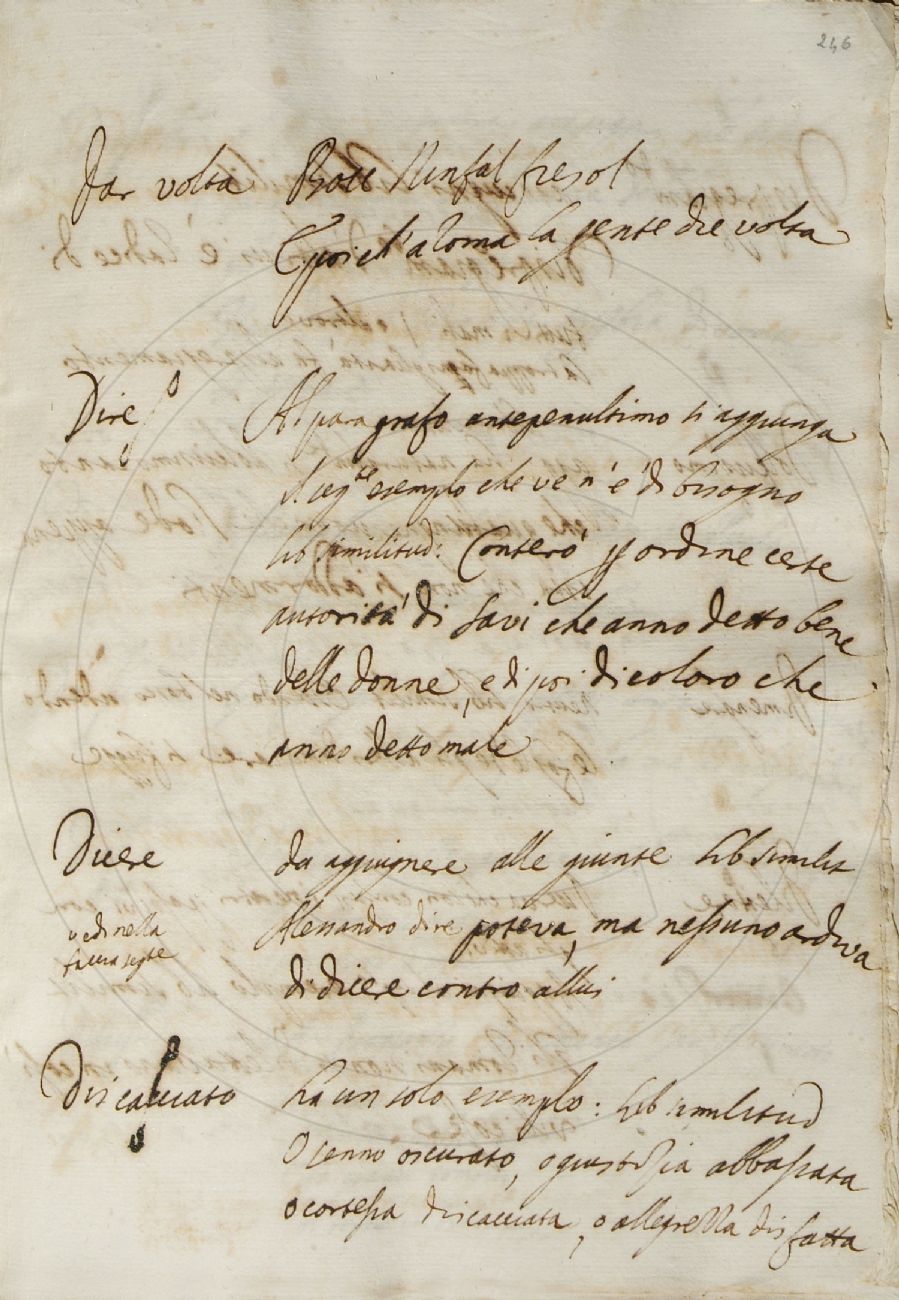 246
dar volta Bocc Ninfal fiesol
E poi ch'a Roma la gente die volta
Dire Al paragrafo antepenultimo si aggiunga
il seg.te esemplo che ve n'è di bisogno
lib. similitud: Conterò p ordine certe
autorità di savi che anno detto bene
delle donne, e di poi di coloro che
anno detto male
Dicere da aggiugnere alle giunte lib similit
vedi nella Alessandro dire poteva, ma nessuno ardiva
faccia di dicere contro allui
Discacciato ha un solo esemplo: lib similitud
O senno oscurato, o giustizia abbassata
o cortesia discacciata, o allegrezza disfatta